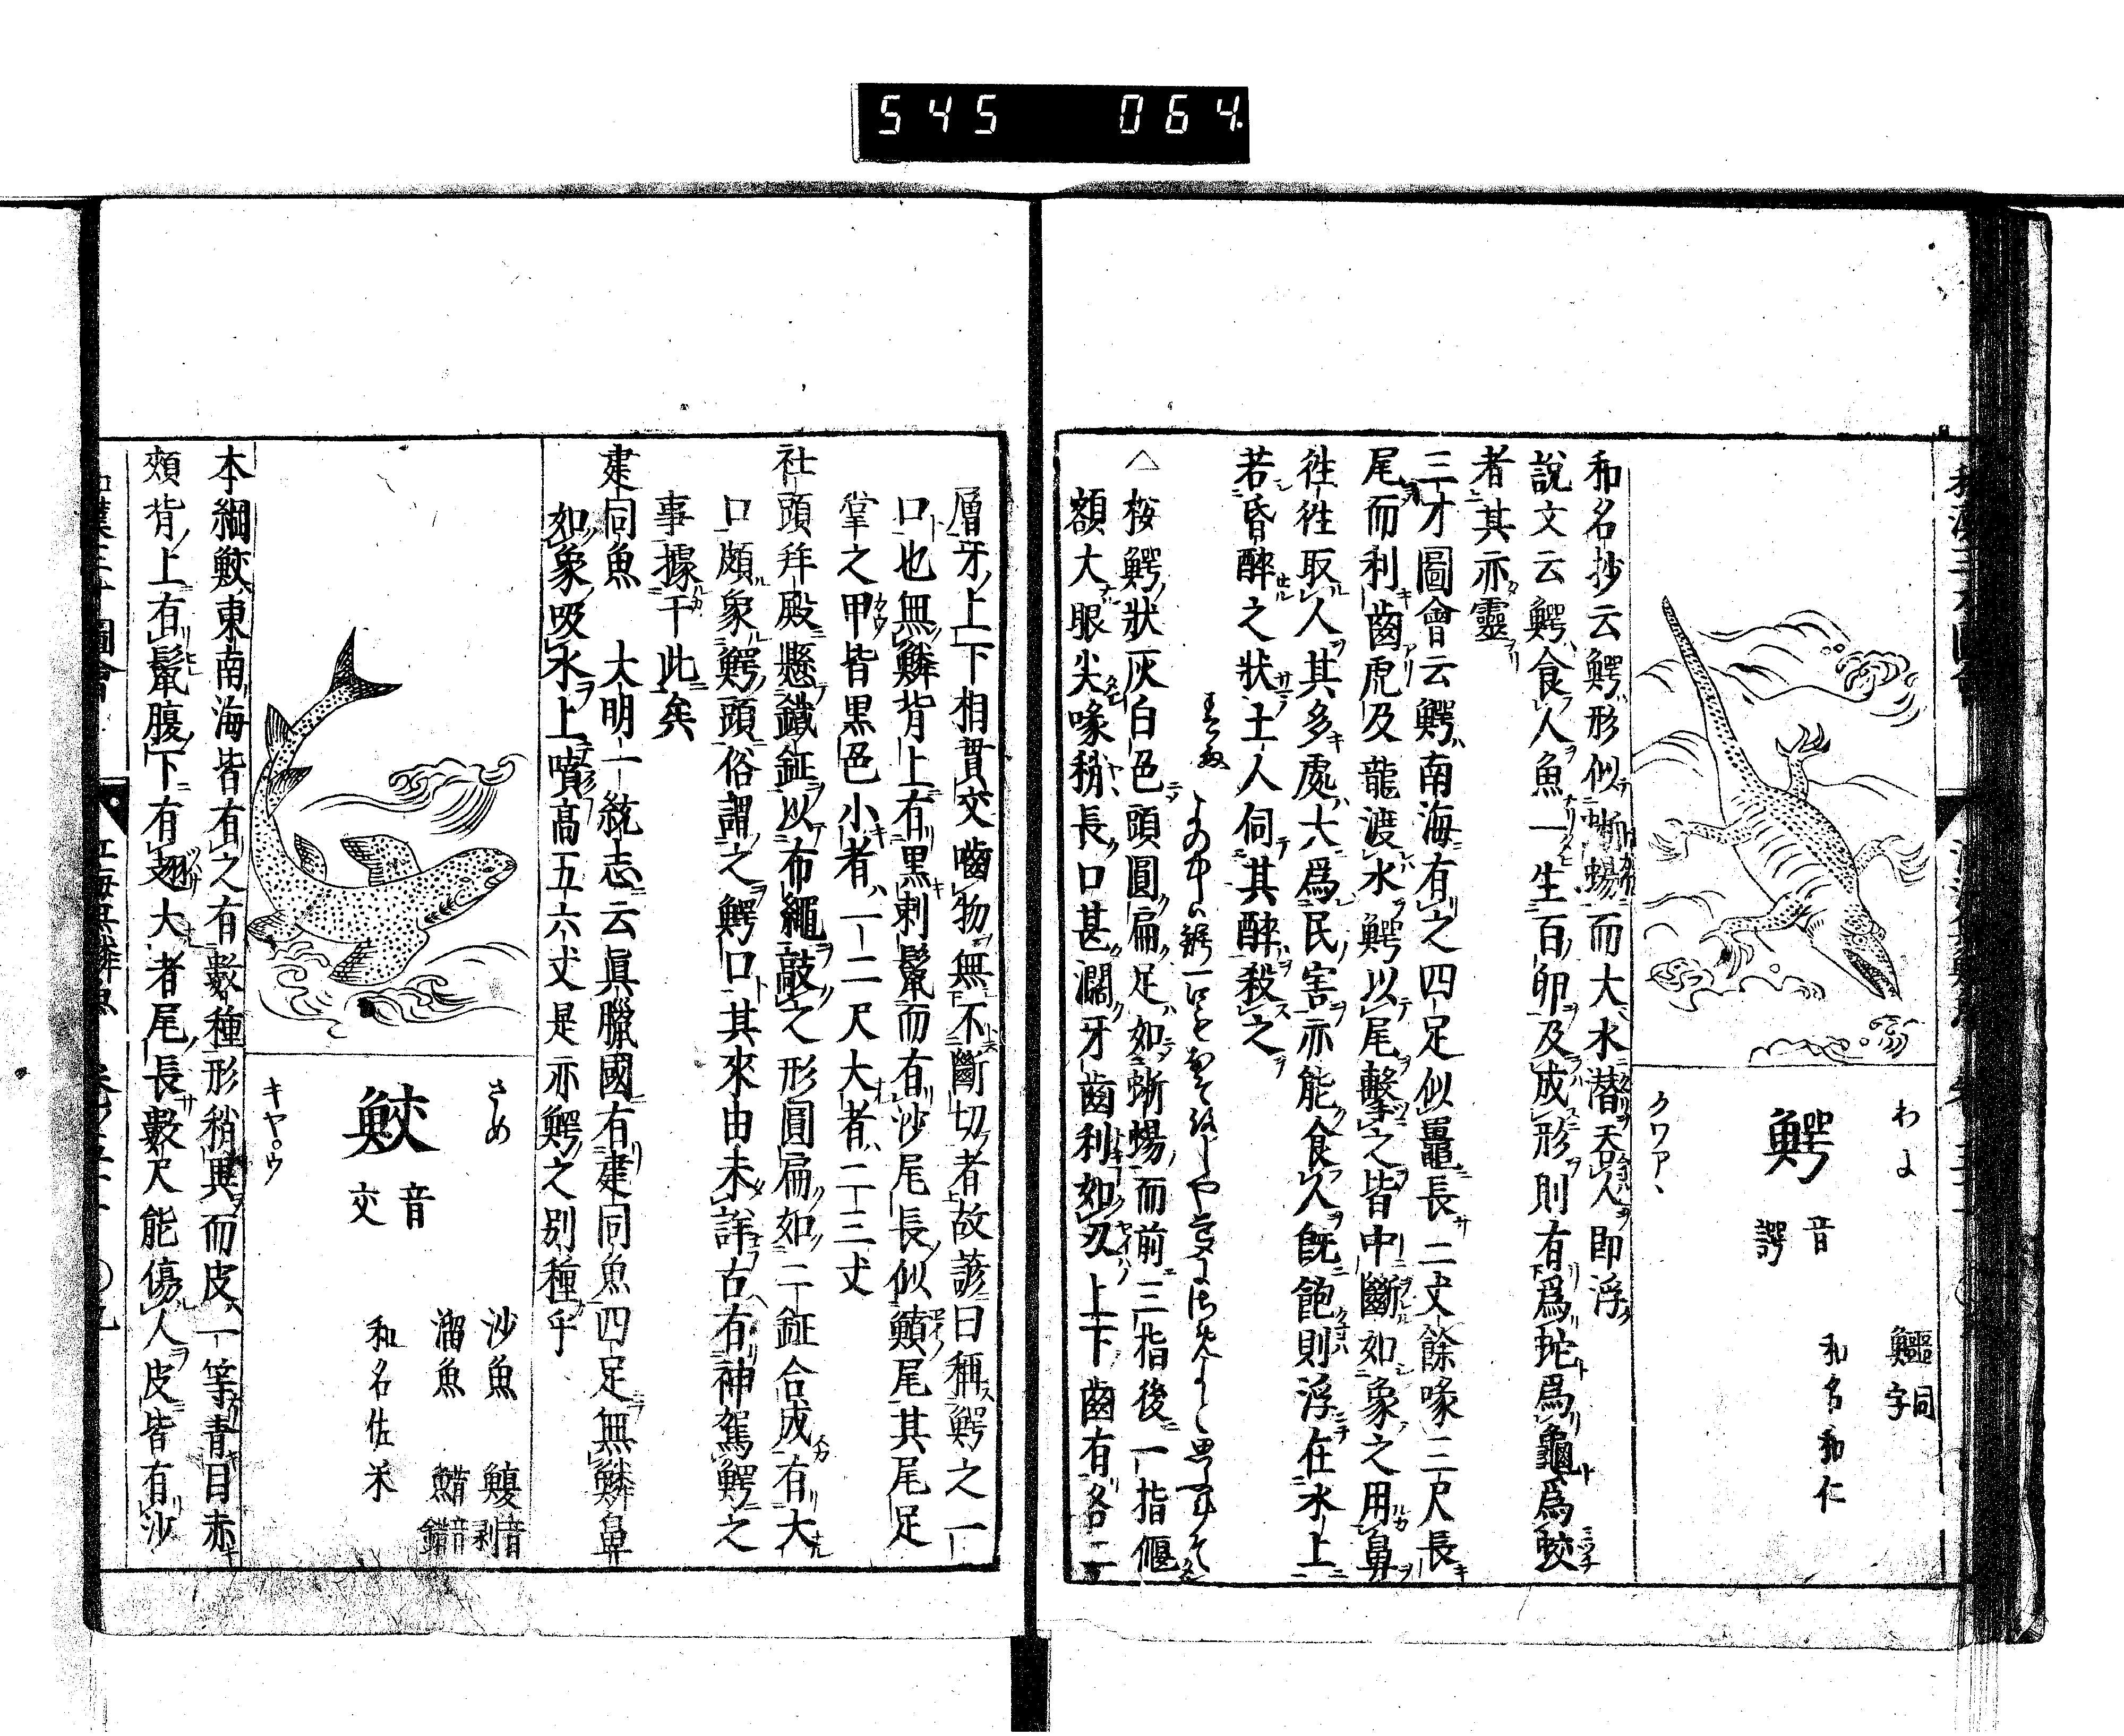 545 064
わに
鰐
音
諤
クワアヽ
鱷同字
和名和仁
和名抄云鰐形似蜥蜴而大水潜吞人即浮
說文云鰐食人魚一生百卵及成形則有爲蛇爲龜爲蛟
者其亦靈
三才圖會云鰐南海有之四足似鼉長二丈餘喙三尺長
尾而利齒虎及龍渡水鰐以尾擊之皆中斷如象之用鼻
徃徃取人其多處大爲民害亦能食人既飽則浮在水上
若昏醉之狀土人伺其醉殺之
△按鰐狀灰白色頭圓扁足如蜥蜴而前三指後一指偃
額大眼尖喙稍長口甚濶牙齒利如刄上下齒有各二
層牙上下相貫交嚙物無不斷切者故諺曰稱鰐之一
口也無鱗背上有黒刺鬛而有沙尾長似鱝尾其尾足
掌之甲皆黒色小者一二尺大者二三丈
社頭拜殿懸鐵鉦以布繩敲之形圓扁如二鉦合成有大
口頗象鰐頭俗謂之鰐口其來由未詳古有神駕鰐之
事據于此矣
建同魚 大明一統志云眞臘國有建同魚四足無鱗鼻
如象吸水上噴高五六丈是亦鰐之別種乎
さめ
鮫
音
交
キヤ゜ウ
沙魚 䱜音剥
溜魚 䱜音錯
和名佐米
本綱鮫東南海皆有之有數種形稍異而皮一等青目赤
頰背上有鬛腹下有翅大者尾長數尺能傷人皮皆有沙